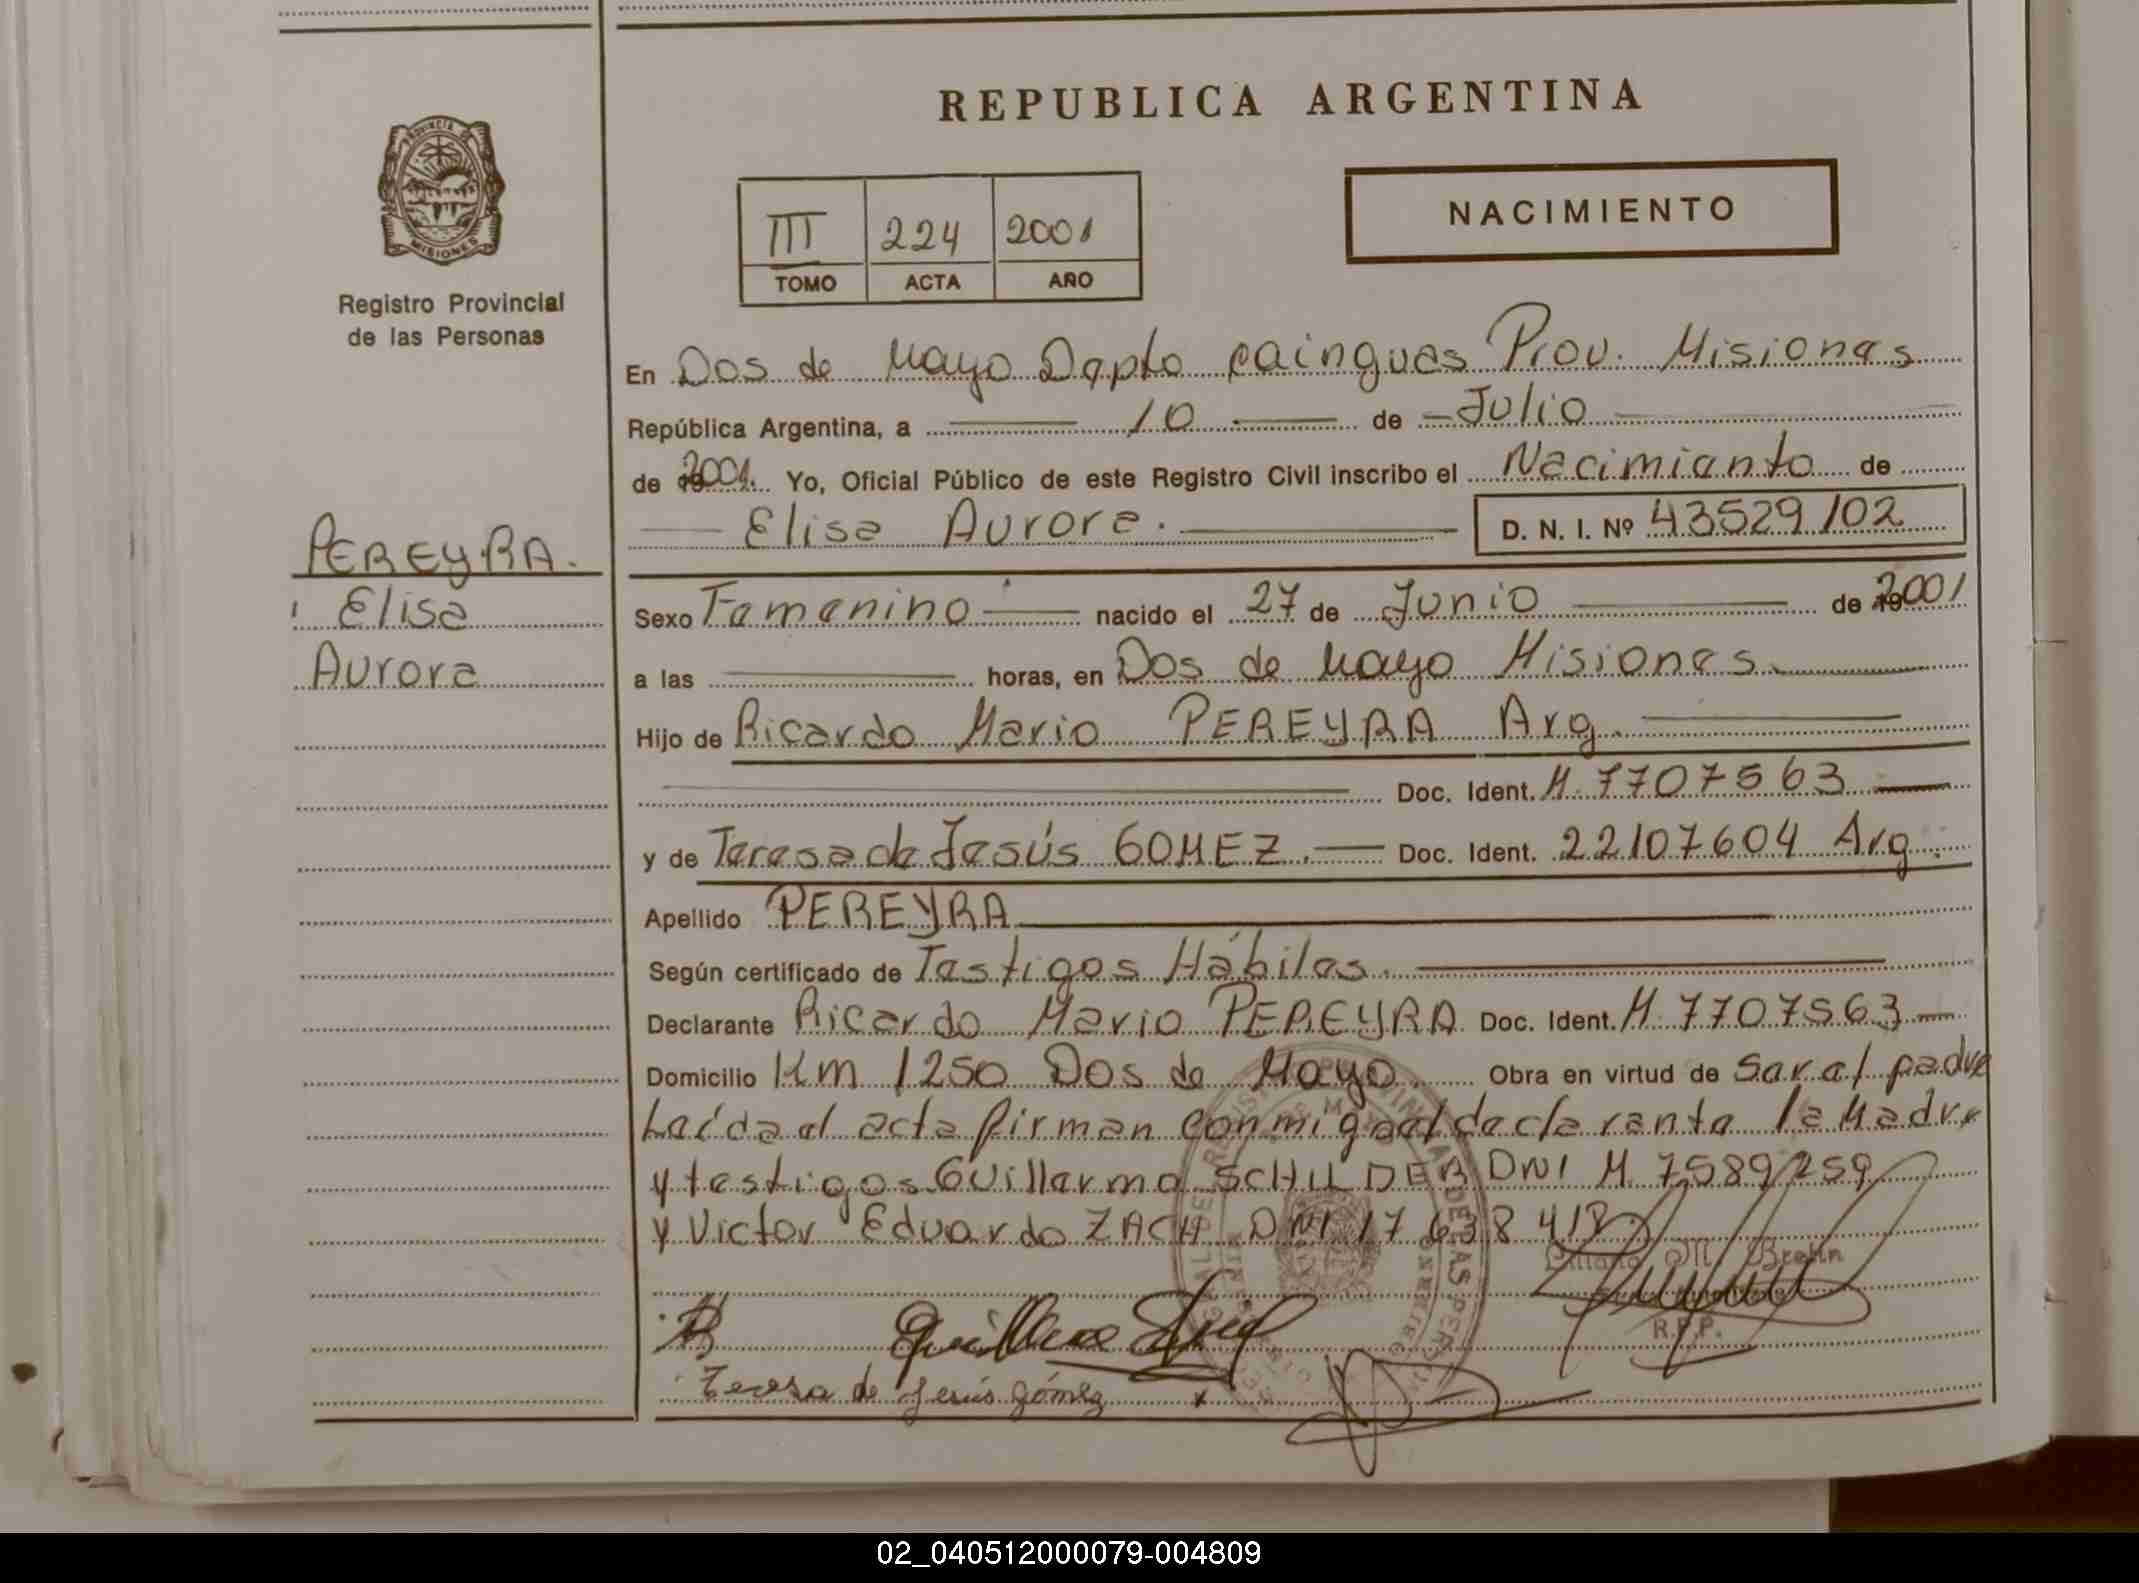 REPUBLICA ARGENTINA
PROVINCIA DE
MISIONES
Registro Provincial
de las Personas
III 224 2001
TOMO ACTA AÑO
NACIMIENTO
En Dos de Mayo Dapto Cainguas Prov. Misiones
República Argentina, a 10 de Julio
de 2001. Yo, Oficial Público de este Registro Civil inscribo el Nacimiento de
Elisa Aurora. D. N. I. Nº 43529102
PEREYRA.
Elisa
Aurora
Sexo Femenino nacido el 27 de Junio de 2001
a las horas, en Dos de Mayo Misiones.
Hijo de Ricardo Mario PEREYRA Arg.
Doc. Ident. M 7707563
y de Teresa de Jesús GOMEZ. Doc. Ident. 22107604 Arg.
Apellido PEREYRA
Según certificado de Testigos Hábiles.
Declarante Ricardo Mario PEREYRA Doc. Ident. M 7707563
Domicilio Km 1250 Dos de Mayo. Obra en virtud de Ser el padre
Leída el acta firman conmigo el declarante la Madre
y testigos Guillermo SCHILDER DNI M 7589259
y Victor Eduardo ZACH DNI 17 638 418
M. Brelin
R.P.P.
Teresa de Jesús Gómez
02_040512000079-004809